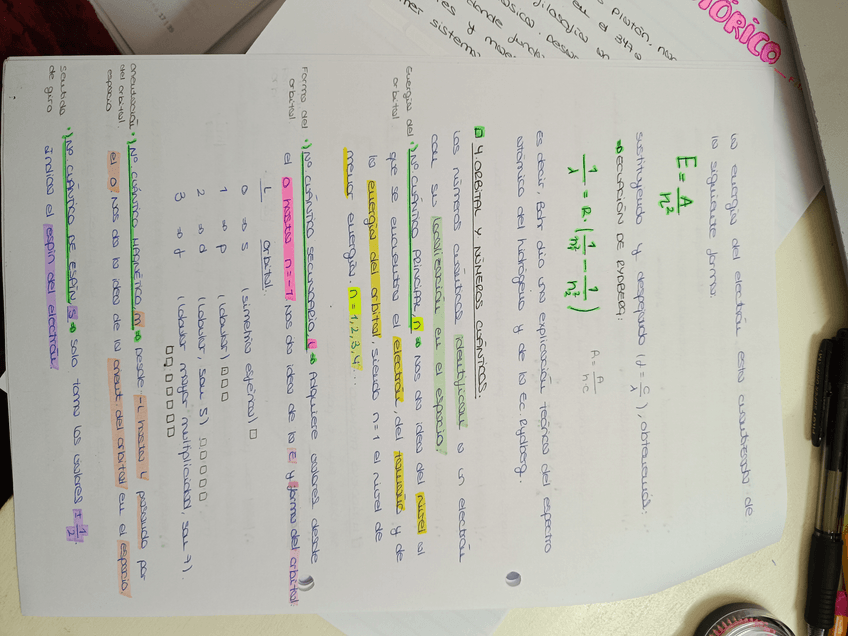 la energía del electrón está cuantizada de
la siguiente forma:
E = A/n²
sustituyendo y despejando (f = c/λ), obtenemos:
⇒ ECUACIÓN DE RYDBERG:
1/λ = R · (1/n₁² - 1/n₂²)
R = A/hc
es decir, Bohr dio una explicación teórica del espectro
atómico del hidrógeno y de la Ec. Rydberg.
4 ORBITAL Y NÚMEROS CUÁNTICOS:
Los números cuánticos identifican a un electrón
con su localización en el espacio.
Energía del orbital
·) Nº CUÁNTICO PRINCIPAL, n ⇒ Nos da idea del nivel el
que se encuentra el electrón, del tamaño y de
la energía del orbital, siendo n=1 el nivel de
menor energía. n = 1, 2, 3, 4...
Forma del orbital
·) Nº CUÁNTICO SECUNDARIO L ⇒ Adquiere valores desde
el 0 hasta n-1 nos da idea de la E y forma del orbital
L orbital.
0 ⇒ s (simetría esférica) □
1 ⇒ p (lobular) □□□
2 ⇒ d (lobular, son 5) □□□□□
3 ⇒ f (lobular mayor multiplicidad, son 7).
□□□□□□□
orientación del orbital espacio
·) Nº CUÁNTICO MAGNÉTICO m ⇒ Desde -L hasta L pasando por
el 0. Nos da la idea de la orient. del orbital en el espacio.
sentido de giro
·) Nº CUÁNTICO DE ESPÍN S ⇒ Solo toma los valores ± 1/2
indica el espín del electrón.
TÓRICO
Platón, nor
en el 347 a
filosofía un
donde
sistema